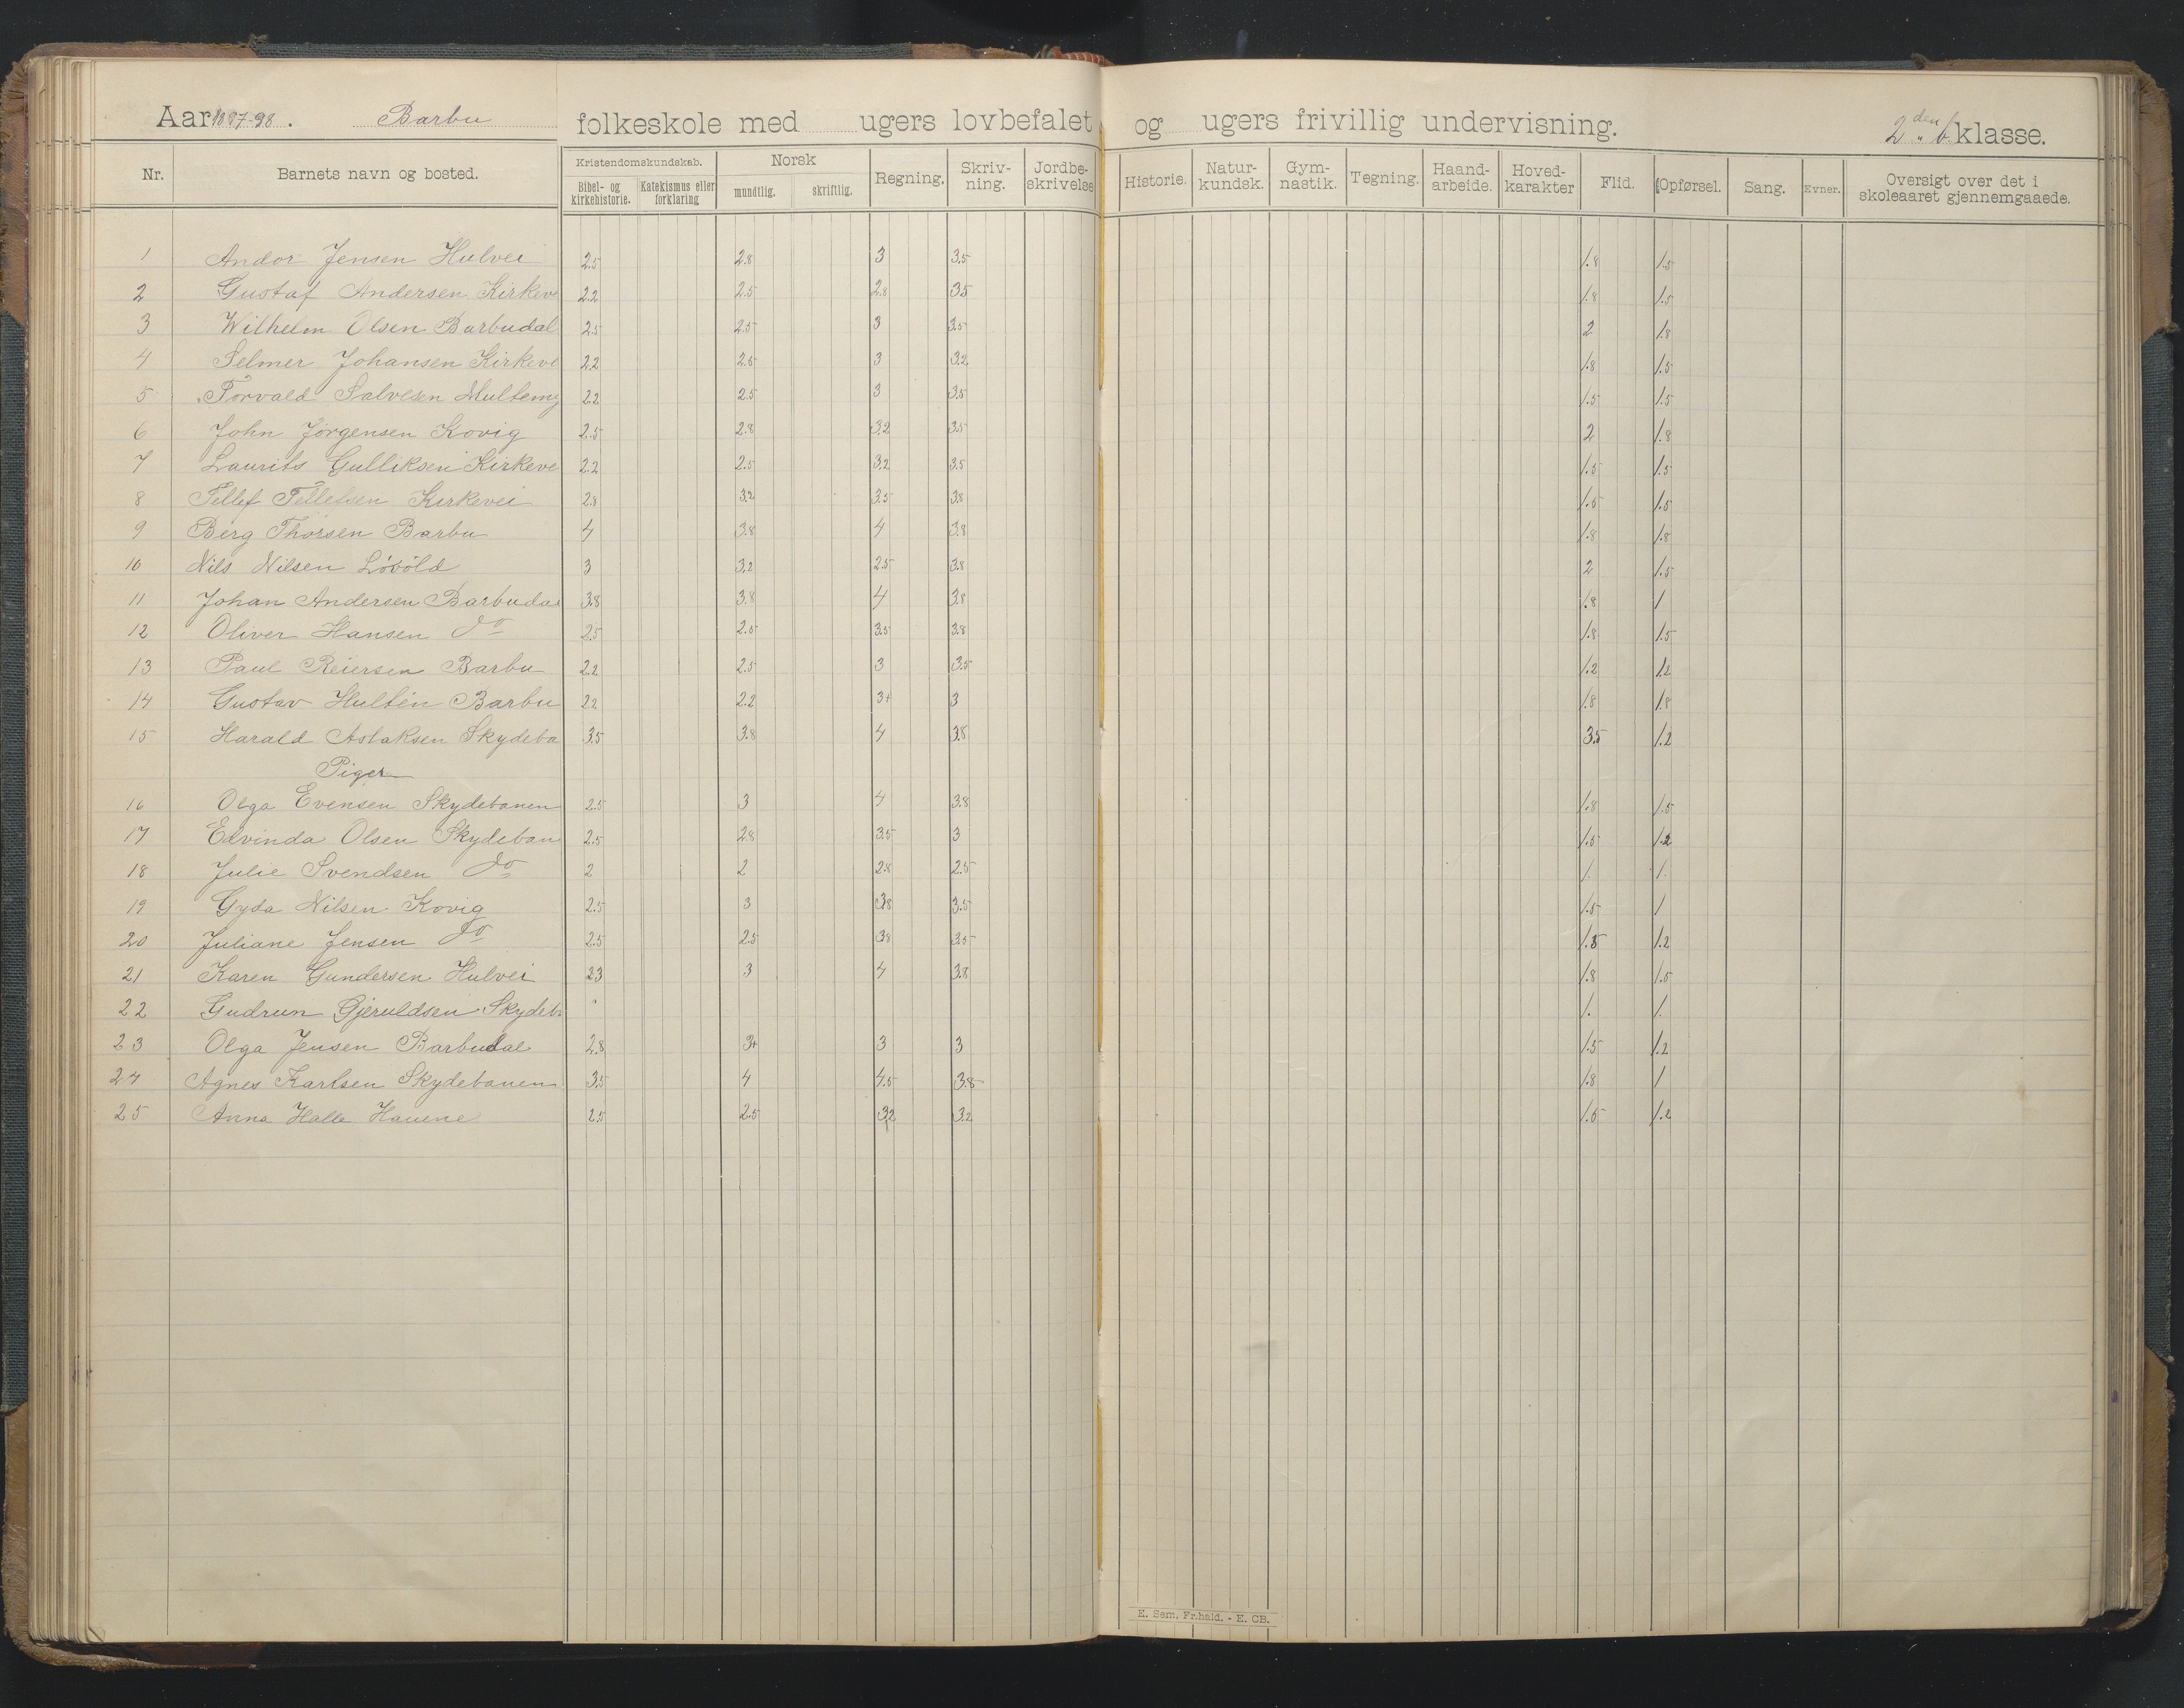 Aar 1897-98. Barbu folkeskole med ugers lovbefalet og ugers frivillig undervisning. 2den b. klasse.
Nr. Barnets navn og bosted. Kristendomskundskab. Bibel- og kirkehistorie. Katekismus eller forklaring Norsk mundtlig. skriftlig. Regning. Skriv-ning. Jordbe-skrivelse Historie. Natur-kundsk. Gym-nastik. Tegning. Haand-arbeide. Hoved-karakter Flid. Opførsel. Sang. Evner. Oversigt over det i skoleaaret gjennemgaaede.
1 Andor Jensen Hulvei 2.5 2.8 3 3.5 1.8 1.5
2 Gustaf Andersen Kirkeve 2.2 2.5 2.8 3.5 1.8 1.5
3 Wilhelm Olsen Barbudal 2.5 2.5 3 3.5 2 1.8
4 Selmer Johansen Kirkeve 2.2 2.5 3 3.2 1.8 1.5
5 Torvald Salvesen Multemy 2.2 2.5 3 3.5 1.5 1.5
6 John Jörgensen Kovig 2.5 2.8 3.2 3.5 2 1.8
7 Laurits Gulliksen Kirkeve 2.2 2.5 3.2 3.5 1.5 1.5
8 Tellef Tellefsen Kirkevei 2.8 3.2 3.5 3.8 1.5 1.5
9 Berg Thorsen Barbu 4 3.8 4 3.8 1.8 1.8
10 Nils Nilsen Lövöld 3 3.2 2.5 3.8 2 1.5
11 Johan Andersen Barbudal 3.8 3.8 4 3.8 1.8 1
12 Oliver Hansen do 2.5 2.5 3.5 3.8 1.8 1.5
13 Paul Reiersen Barbu 2.2 2.5 3 3.5 1.2 1.2
14 Gustav Hultén Barbu 2.2 2.2 3+ 3 1.8 1.8
15 Harald Aslaksen Skydeba 3.5 3.8 4 3.8 3.5 1.2
Piger
16 Olga Evensen Skydebanen 2.5 3 4 3.8 1.8 1.5
17 Edvinda Olsen Skydeban 2.5 2.8 3.5 3 1.5 1.2
18 Julie Svendsen do 2 2 2.8 2.5 1. 1.
19 Gyda Nilsen Kovig 2.5 3 3.8 3.5 1.5 1
20 Juliane Jensen do 2.5 2.5 3.8 3.5 1.5 1.2
21 Karen Gundersen Hulvei 2.3 3 4 3.8 1.8 1.5
22 Gudrun Gjeruldsen Skydeb 1. 1.
23 Olga Jensen Barbudal 2.8 3+ 3 3 1.5 1.2
24 Agnes Karlsen Skydebanen 3.5 4 4.5 3.8 1.8 1
25 Anna Halle Havene 2.5 2.5 3.2 3.2 1.5 1.2
E. Sem, Fr.hald. - E. CB.